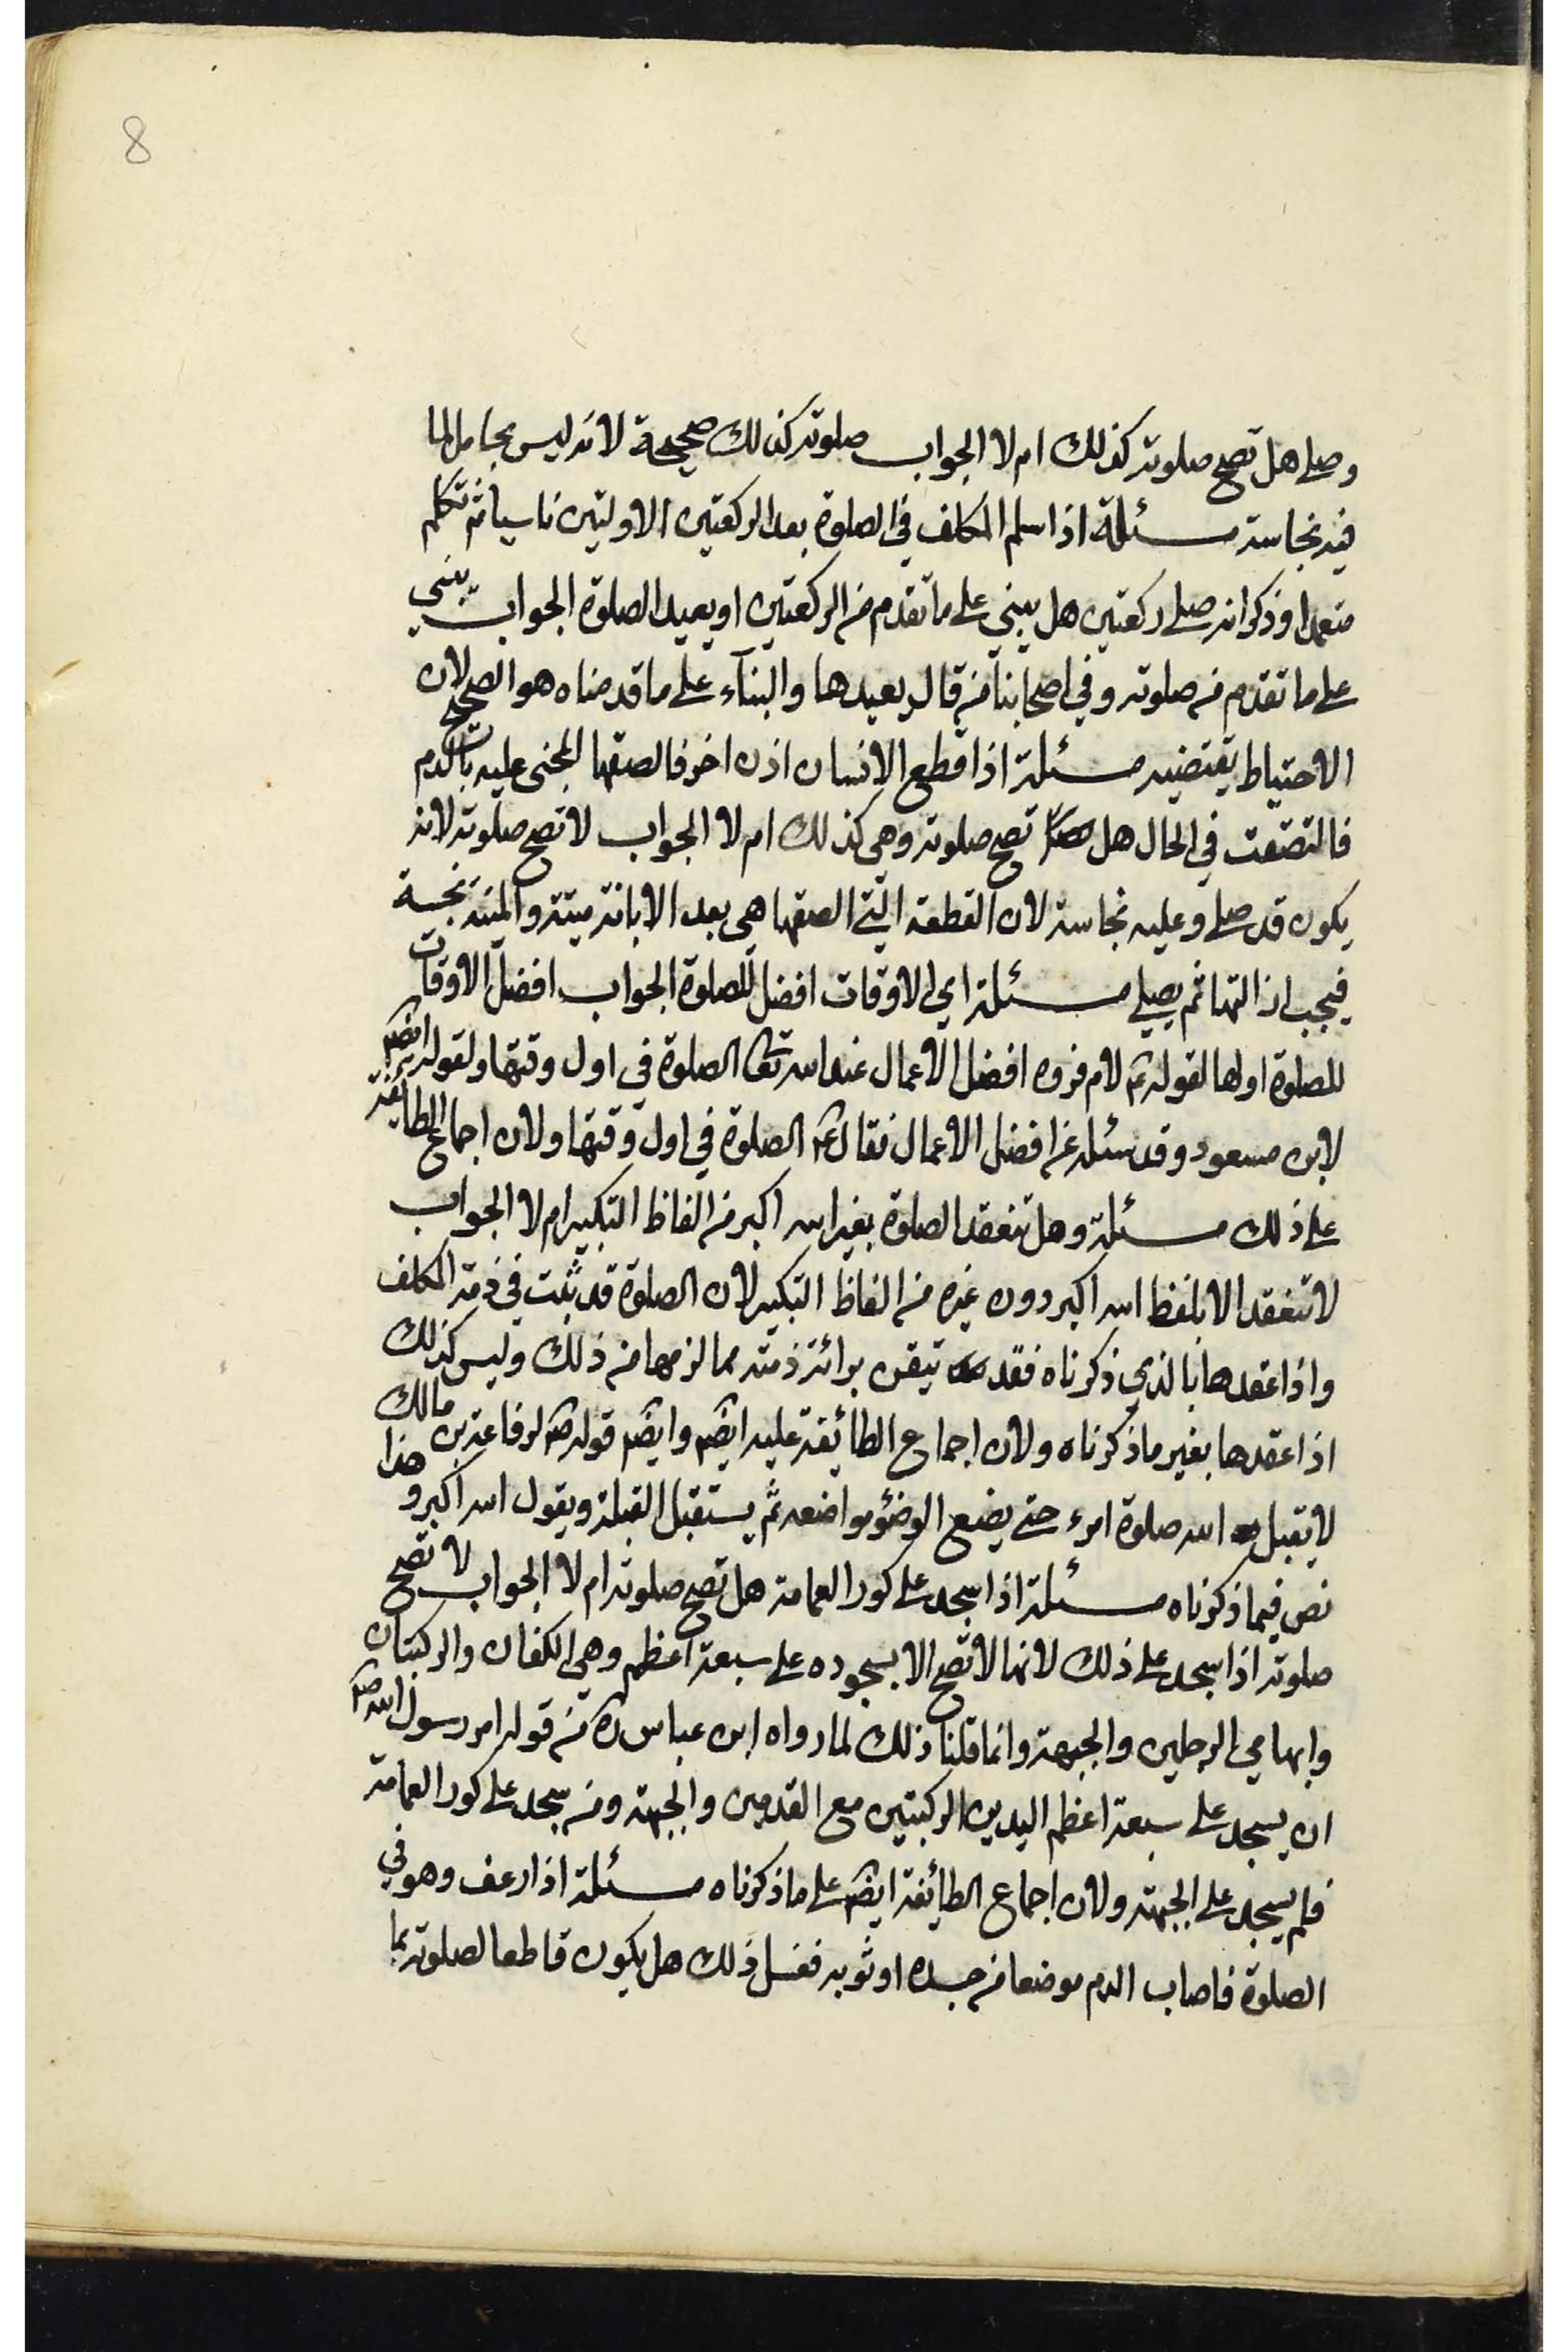 8
وصلى هل تصح صلوته كذلك ام لا الجواب صلوته كذلك صحيحة لانه ليس بحامل لما
فيه نجاسة مسئلة اذا سلم المكلف في الصلوة بعد الركعتين الاولتين ناسيا ثم تكلم
متعمدا وذكر انه صلى ركعتين هل يبني على ما تقدم من الركعتين او يعيد الصلوة الجواب يبنى
على ما تقدم من صلوته وفي اصحابنا من قال يعيدها والبنآء على ما قدمناه هو الصحيح لان
الاحتياط يقتضيه مسئلة اذا قطع الانسان اذن اخر فالصقها المجنى عليه بالدم
فالتصقت في الحال هل تصح صلوته وهي كذلك ام لا الجواب لا تصح صلوته لانه
يكون قد صلى وعليه نجاسة لان القطعة التي الصقها هي بعد الابانة ميتة والميتة نجسة
فيجب ازالتها ثم يصلي مسئلة اي الاوقات افضل للصلوة الجواب افضل الاوقات
للصلوة اولها لقوله ع لام فروه افضل الاعمال عند الله تعا الصلوة في اول وقتها ولقوله ايضا
لابن مسعود وقد سئله عن افضل الاعمال فقال ع الصلوة في اول وقتها ولان اجماع الطايفة
على ذلك مسئلة وهل تنعقد الصلوة بغير الله اكبر من الفاظ التكبير ام لا الجواب
لا تنعقد الا بلفظ الله اكبر دون غيره من الفاظ التكبير لان الصلوة قد ثبت في ذمة المكلف
واذا عقدها بالذي ذكرناه فقد تيقن برائة ذمته مما لزمها من ذلك وليس كذلك
اذا عقدها بغير ما ذكرناه ولان اجماع الطائيفة عليه ايضا وايضا قوله ص لرفاعة بن مالك
لا يقبل الله صلوة امرء حتى يضع الوضؤ مواضعه ثم يستقبل القبلة ويقول الله اكبر وهذا
نص فيما ذكرناه مسئلة اذا سجد على كور العمامة هل تصح صلوته ام لا الجواب لا تصح
صلوته اذا سجد على ذلك لانها لا تصح الا بسجوده على سبعة اعظم وهي الكفان والركبتان
وابهامي الرجلين والجبهة وانما قلنا ذلك لما رواه ابن عباس ره من قوله امر رسول الله ص
ان يسجد على سبعة اعظم اليدين الركبتين مع القدمين والجبهة ومن سجد على كور العمامة
فلم يسجد على الجبهة ولان اجماع الطايئفة ايضا على ما ذكرناه مسئلة اذا رعف وهو في
الصلوة فاصاب الدم موضعا من جسده او ثوبه فغسل ذلك هل يكون قاطعا لصلوته بما